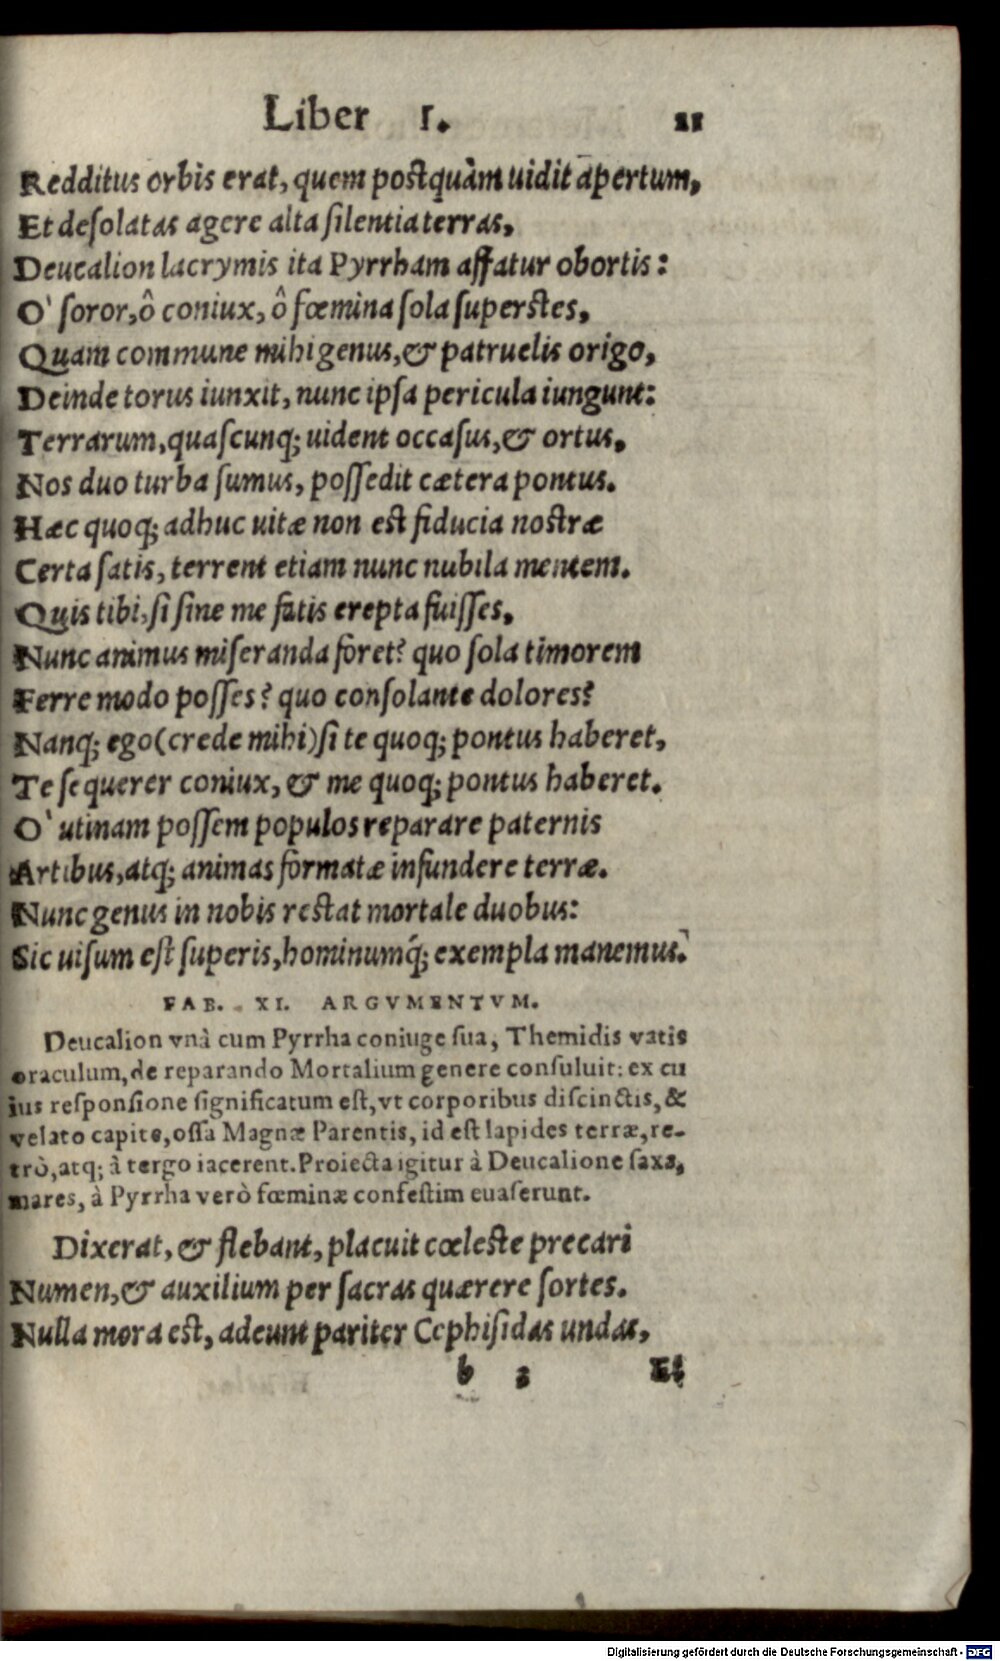 Liber I. 11
Redditus orbis erat, quem postquàm uidit apertum,
Et desolatas agere alta silentia terras,
Deucalion lacrymis ita Pyrrham affatur obortis:
O' soror, ô coniux, ô fœmina sola superstes,
Quam commune mihi genus, & patruelis origo,
Deinde torus iunxit, nunc ipsa pericula iungunt:
Terrarum, quascunq; uident occasus, & ortus,
Nos duo turba sumus, possedit cætera pontus.
Hæc quoq; adhuc uitæ non est fiducia nostræ
Certa satis, terrent etiam nunc nubila mentem.
Quis tibi, si sine me fatis erepta fuisses,
Nunc animus miseranda foret? quo sola timorem
Ferre modo posses? quo consolante dolores?
Nanq; ego (crede mihi) si te quoq; pontus haberet,
Te sequerer coniux, & me quoq; pontus haberet.
O' utinam possem populos reparare paternis
Artibus, atq; animas formatæ infundere terræ.
Nunc genus in nobis restat mortale duobus:
Sic uisum est superis, hominumq́; exempla manemus.
FAB. XI. ARGVMENTVM.
Deucalion vnà cum Pyrrha coniuge sua, Themidis vatis
oraculum, de reparando Mortalium genere consuluit: ex cu
ius responsione significatum est, vt corporibus discinctis, &
velato capite, ossa Magnæ Parentis, id est lapides terræ, re-
trò, atq; à tergo iacerent. Proiecta igitur à Deucalione saxa,
mares, à Pyrrha verò fœminæ confestim euaserunt.
Dixerat, & flebant, placuit cœleste precari
Numen, & auxilium per sacras quærere sortes.
Nulla mora est, adeunt pariter Cephisidas undas,
b 3 Et
Digitalisierung gefördert durch die Deutsche Forschungsgemeinschaft - DFG